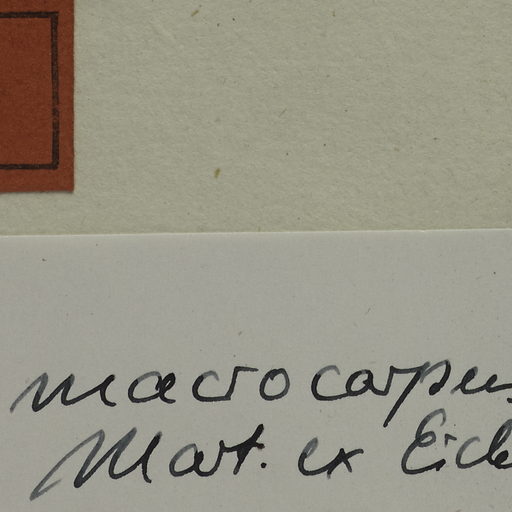 macrocarpus
Mart. ex Eich